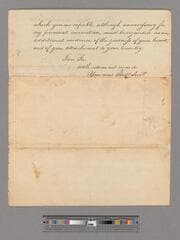 which you are capable although unnecessary for
my personal conviction will be regarded as an
additional evidence of the goodness of your heart,
and of your attachment to your country.
I am Sir
with esteem and regard
Your most Obedt Servt